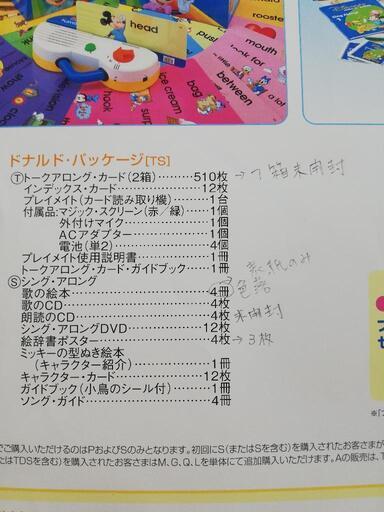 head
rooster
mouth
ice cream
bog
between
a lot
ドナルド・パッケージ[TS]
Ⓣトークアロング・カード(2箱)………510枚 →1箱未開封
インデックス・カード………………12枚
プレイメイト(カード読み取り機)………1台
付属品:マジック・スクリーン(赤/緑)……1個
外付けマイク……………………1個
ACアダプター……………………1個
電池(単2)………………………4個
プレイメイト使用説明書………………1冊
トークアロング・カード・ガイドブック……1冊
表紙のみ
Ⓢシング・アロング
歌の絵本………………………4冊 色落
歌のCD…………………………4枚
朗読のCD………………………4枚 未開封
シング・アロングDVD……………12枚
絵辞書ポスター……………………4枚 →3枚
ミッキーの型ぬき絵本
(キャラクター紹介)………………1冊
キャラクター・カード………………12枚
ガイドブック(小鳥のシール付)………1冊
ソング・ガイド……………………4冊
でご購入いただけるのはPおよびSのみとなります。初回にS(またはSを含む)を購入されたお客さまが
たはTDSを含む)を購入されたお客さまはM、G、Q、Lを単体にて追加購入いただけます。Aの販売は、T